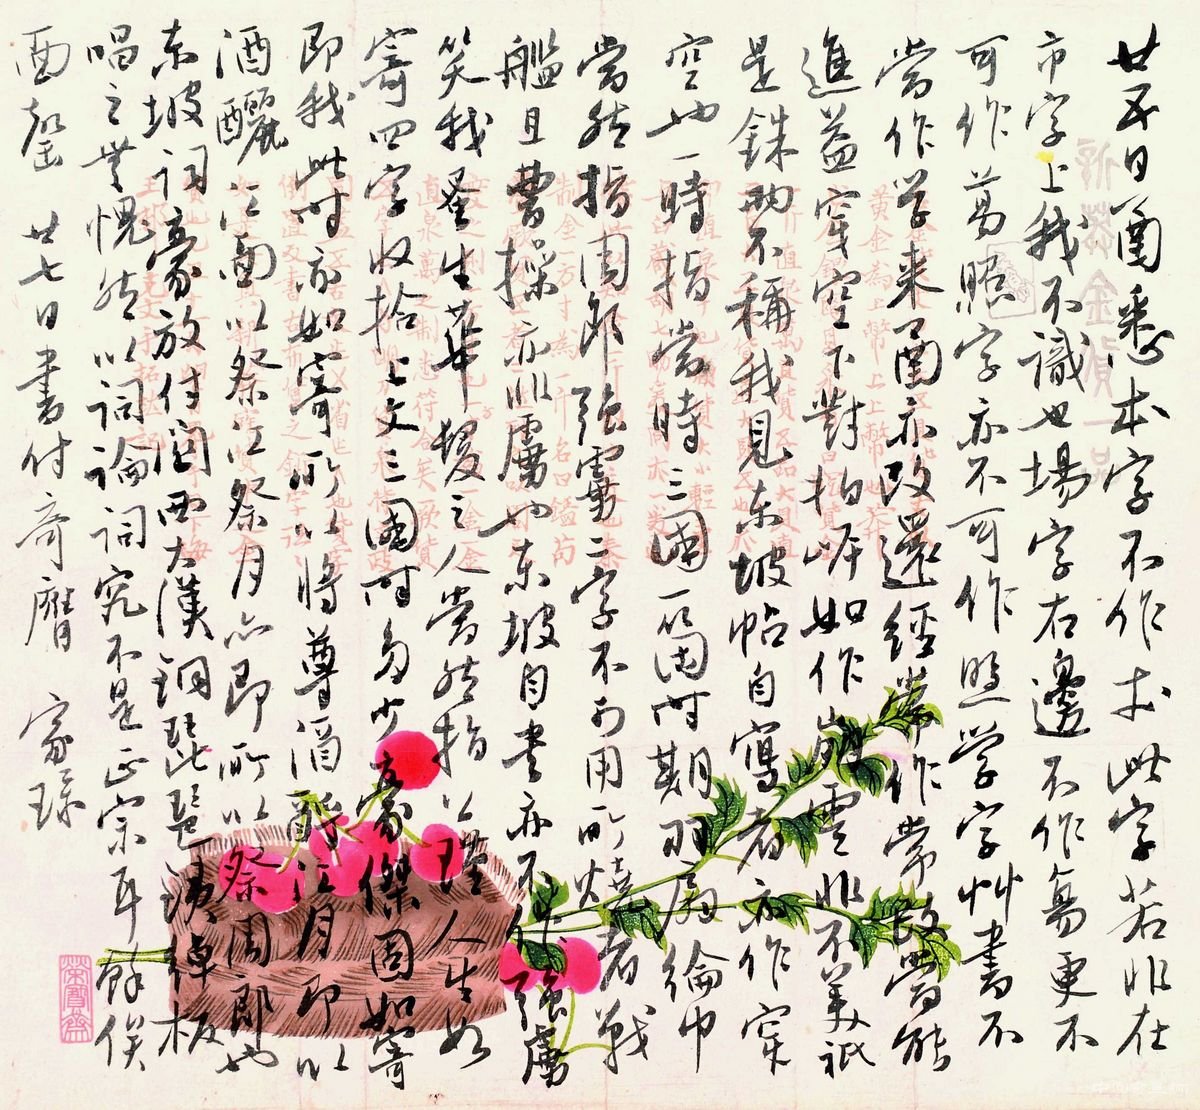 廿五日圅悉本字不作朩此字若非在
市字上我不識也場字右邊不作昜更不
可作募賜字亦不可作 學字艸書不
當作学来圅亦改還經當作常改嘗能
進益穿空下對拍岸如作 雲非不美衹
是銖兩不稱我見东坡帖自寫者亦作穿
空也一時指當時三國一箇時期羽扇綸巾
當然指周郎强虜二字不可用所燒者戰
艦且曹操亦非虜也东坡自書亦不作强虜
笑我蚤生華髮之人當然指公瑾人生如
寄四字收拾上文三國時多少豪傑固如寄
即我此时亦如寄所以將尊酒酹江月即以
酒釃江面以祭江祭月亦即所以祭周郎也
东坡词豪放付関西大漢銅琵琶 綽板
唱之無愧然以词論词究不是正宗耳餘俟
面罄 廿七日書付奇膺 家琭
榮寶齋